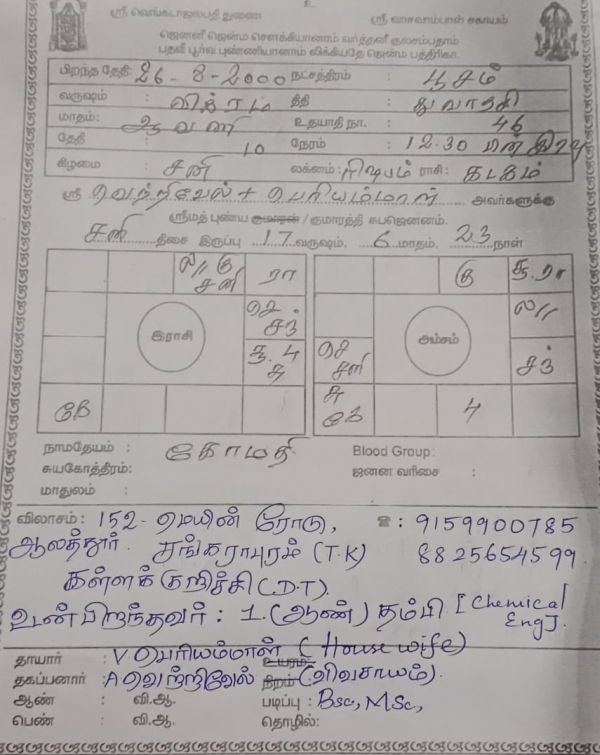 உ
ஸ்ரீ வெங்கடாஜலபதி துணை ஸ்ரீ வாலாம்பாள் சகாயம்
ஜெனனீ ஜென்ம சௌக்கியானாம் வர்த்தனீ குலசம்பதாம்
பதவீ பூர்வ புண்ணியானாம் லிக்கியதே ஜென்ம பத்திரிகா.
பிறந்த தேதி: 26-8-2000 நட்சத்திரம் : பூசம்
வருஷம் : விக்ரம திதி : துவாதசி
மாதம்: ஆவணி உதயாதி நா. : 46
தேதி 10 நேரம் : 12.30 பின் இரவு
கிழமை : சனி லக்னம்: ரிஷபம் ராசி : கடகம்
ஸ்ரீ வெற்றிவேல் + பெரியம்மாள் அவர்களுக்கு
ஸ்ரீமத் புண்ய குமாரன் / குமாரத்தி சுபஜெனனம்.
சனி திசை இருப்பு 17 வருஷம், 6 மாதம், 23 நாள்
ல// குரு சனி ரா
செ. சந்
சூ. 4
கே
இராசி
சூ. ரா
ல//
செ சனி
சந்
கே 4
அம்சம்
நாமதேயம் : கோமதி Blood Group:
சுயகோத்திரம்: ஜனன வரிசை :
மாதுலம் :
விலாசம்: 152- மெயின் ரோடு, ☎: 9159900785
ஆலத்தூர். சங்கராபுரம் (T.K) 8825654599
கள்ளக்குறிச்சி (.DT).
உடன் பிறந்தவர் : 1. (ஆண்) தம்பி [Chemical Eng].
தாயார் : V பெரியம்மாள் (House wife)
உயரம்:
தகப்பனார் : A வெற்றிவேல் நிறம் (விவசாயம்).
ஆண் : வி.ஆ. படிப்பு : Bsc, MSc,
பெண் : வி.ஆ. தொழில்: